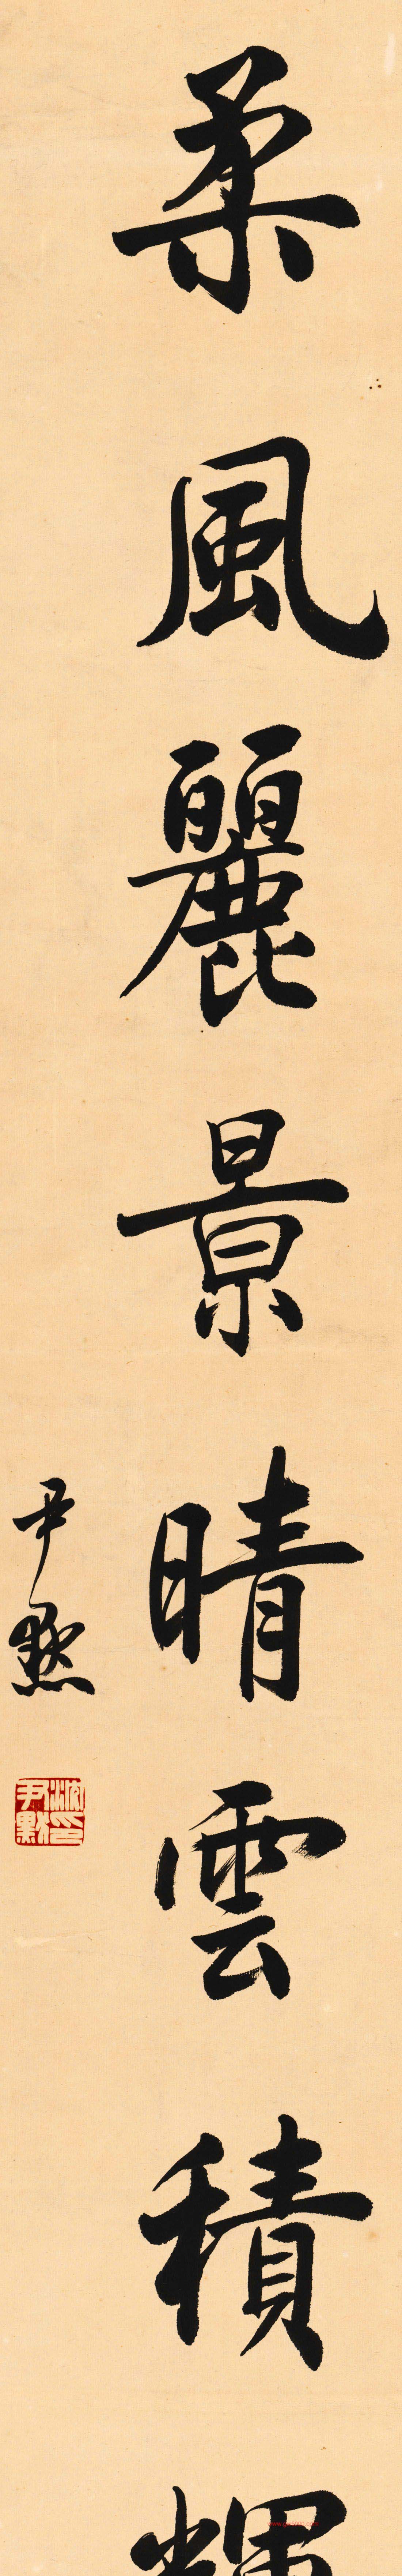 柔風麗景晴雲積輝
尹默
沈尹默印